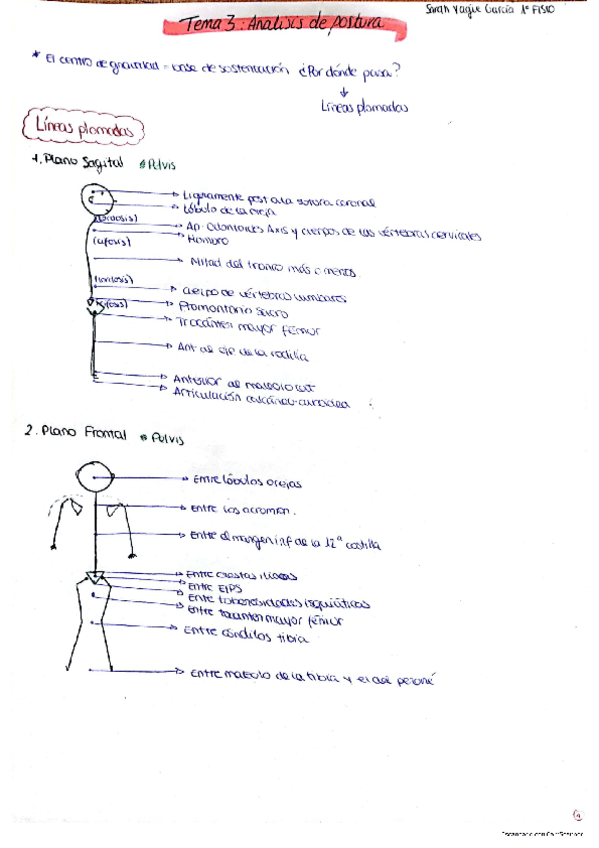 Sarah Yagüe García 1º FISIO
Tema 3: Analisis de postura
* El centro de gravedad - base de sustentación ¿Por dónde pasa?
↓
Líneas plomadas
Líneas plomadas
1. Plano Sagital * Pelvis
Ligeramente post a la sutura coronal
Lóbulo de la oreja
(lordosis)
Ap. Odontoides Axis y cuerpos de las vértebras cervicales
(cifosis)
Húmero
Mitad del tronco más o menos
(lordosis)
Cuerpo de vértebras lumbares
(cifosis)
Promontorio sacro
Trocánter mayor fémur
Ant al eje de la rodilla
Anterior al maleolo lat
Articulación calcáneo-cuboidea
2. Plano Frontal * Pelvis
Entre lóbulos orejas
Entre los acromion.
Entre el margen inf de la 12ª costilla
Entre crestas ilíacas
Entre EIPS
Entre tuberosidades isquiáticas
Entre trocánter mayor fémur
Entre cóndilos tibia
Entre maleolo de la tibia y el del peroné
Escaneado con CamScanner